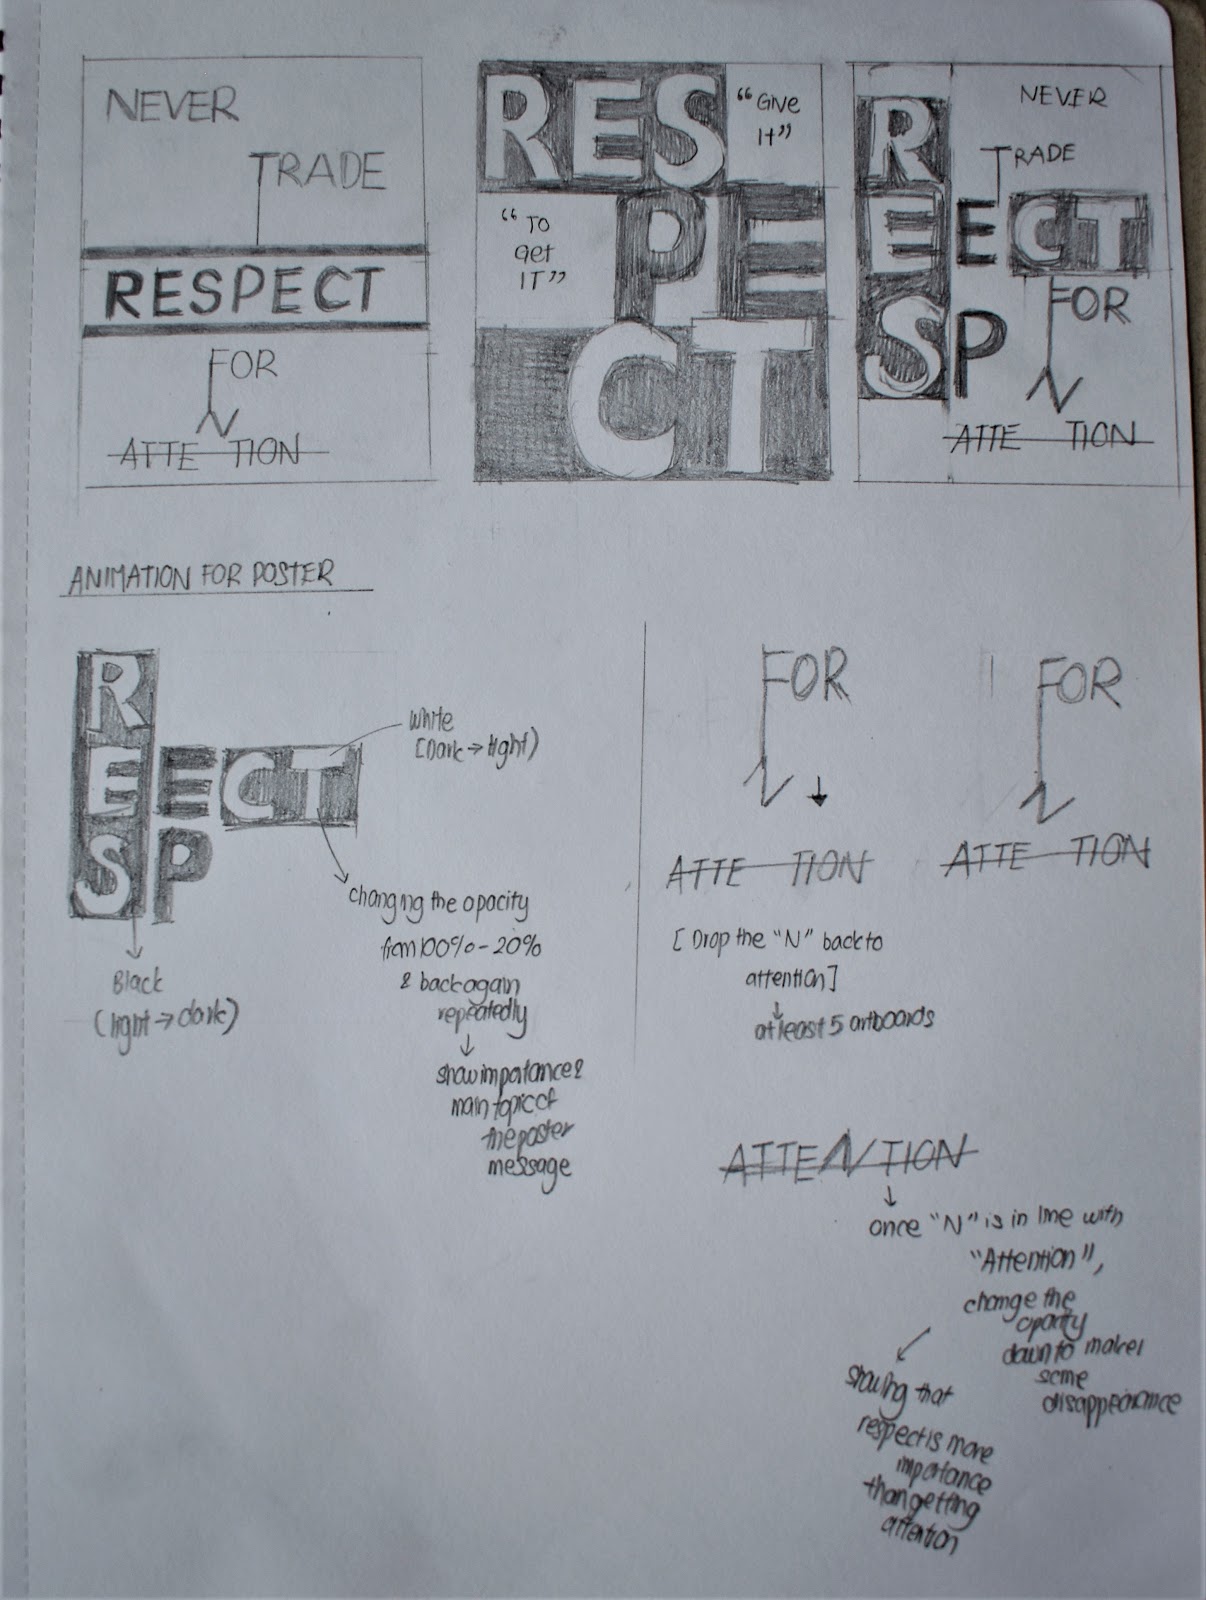 NEVER
TRADE
RESPECT
FOR
N
ATTE TION
RES
“GIVE
IT”
“TO
GET
IT”
PE
CT
NEVER
TRADE
R
E ECT
FOR
SP
N
ATTE TION
ANIMATION FOR POSTER
R
E ECT
SP
White
[Dark → light)
changing the opacity
from 100% - 20%
& back again
repeatedly
↓
show importance &
main topic of
the poster
message
Black
(light → dark)
FOR
N ↓
ATTE TION
[ Drop the “N” back to
attention ]
↓
at least 5 artboards
FOR
N
ATTE TION
ATTENTION
↓
once “N” is in line with
“Attention”,
change the
opacity
down to make
some
disappearance
showing that
respect is more
importance
than getting
attention